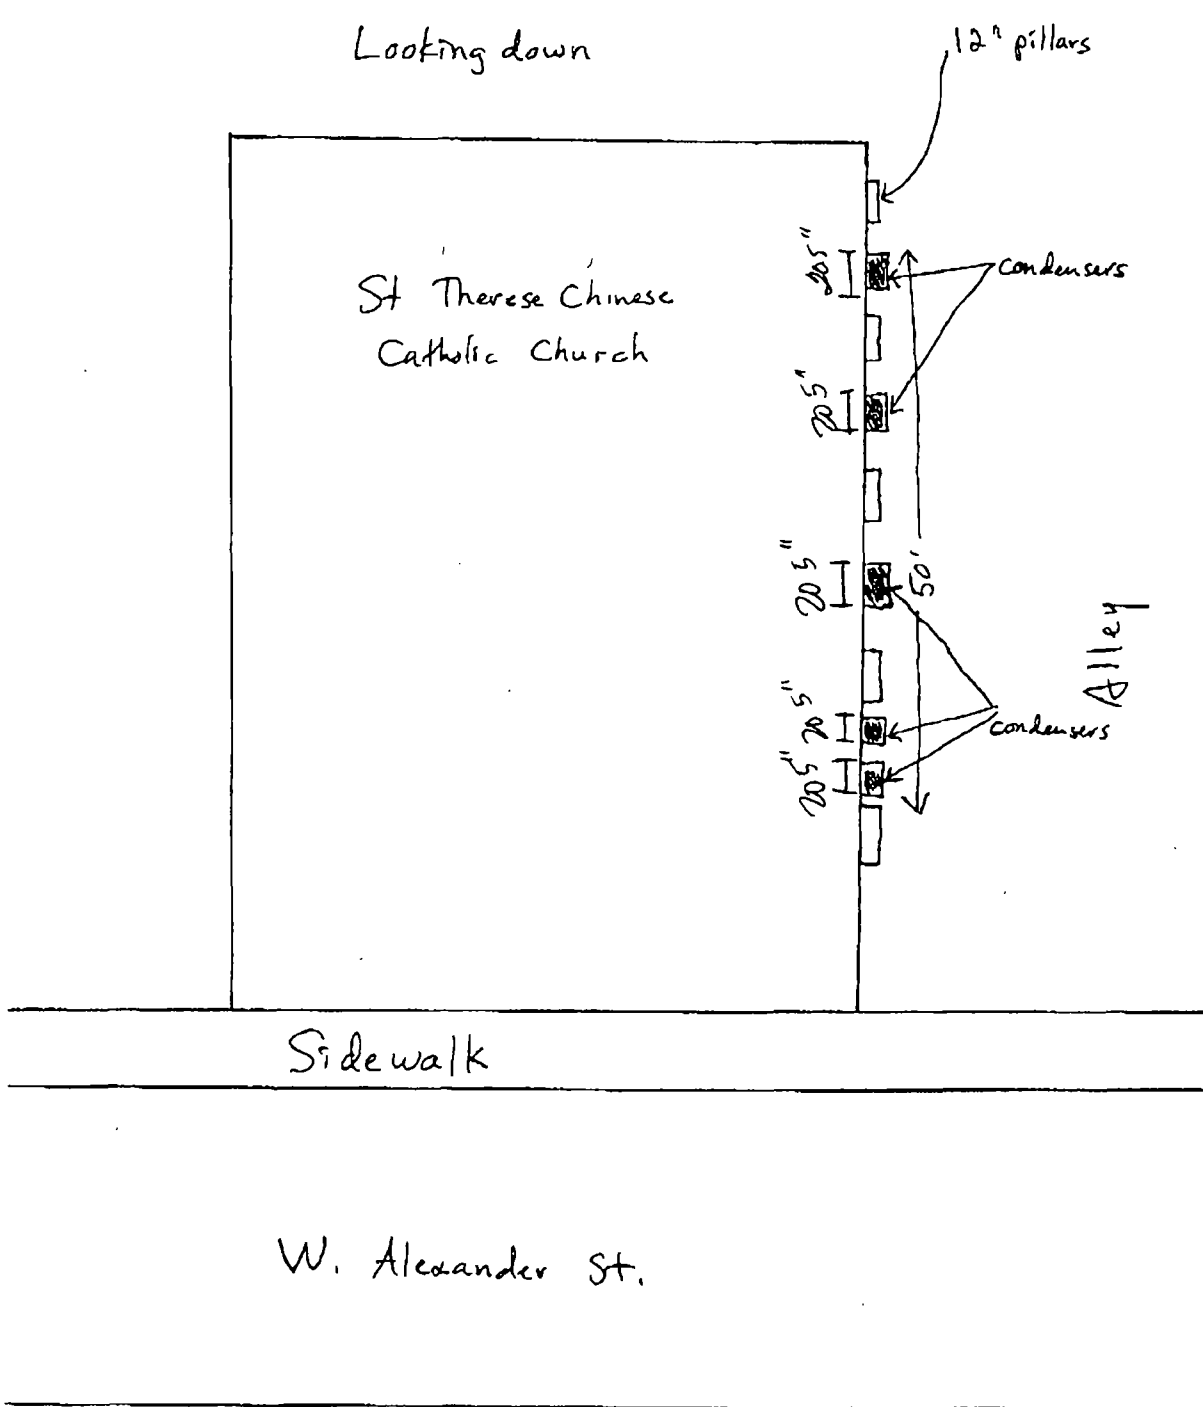 Looking down
12" pillars
St Therese Chinese
Catholic Church
205"
condensers
205"
205"
50'
Alley
205"
condensers
205"
Sidewalk
W. Alexander St.